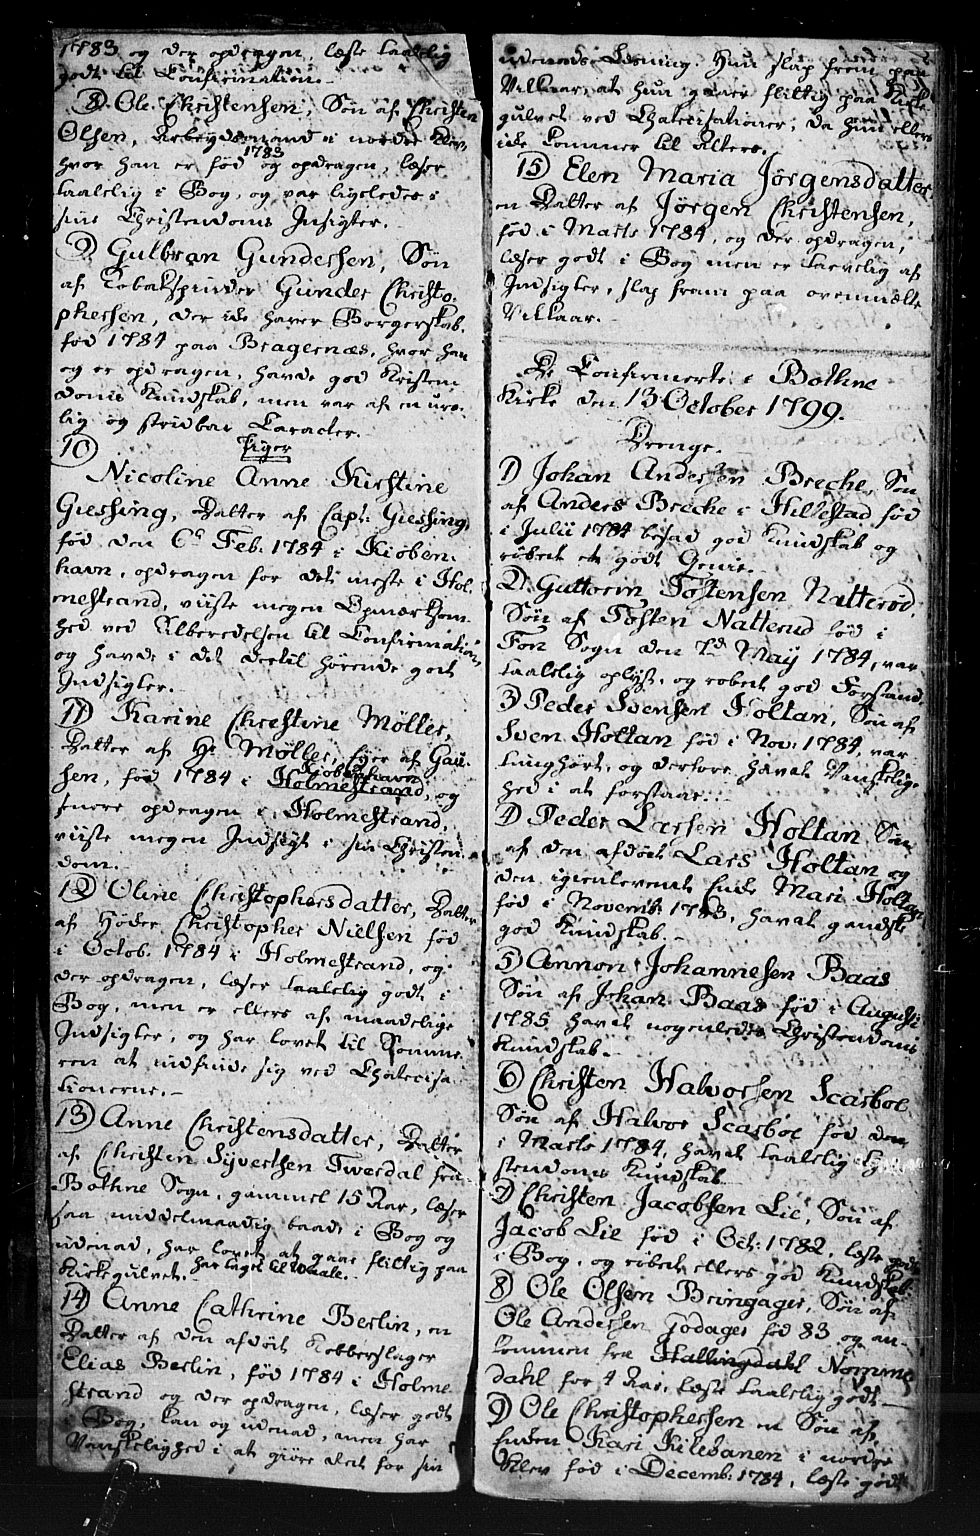 1783 og der opdragen, læste taalelig
godt til Confirmation.
8. Ole Christensen, Søn af Christen
Olsen, Arbeydsmand i nordre Klev,
hvor han er fød 1783 og opdragen, læser
taalelig i Bog, og var ligeledes i
sine Christendoms Indsigter.
9. Gulbran Gundersen, Søn
af Tobakspinder Gunder Christo-
phersen, der ick haver Borgerskab.
fød 1784 paa Bragernæs, hvor han
og er opdragen, havde god Kristen
doms Kundskab, men var af en uro-
lig og stridbar Caracter.
Piger
10
Nicoline Anne Kirstine
Giessing, Datter af Capt: Giessing,
fød den 6d Feb: 1784 i Kioben-
havn, opdragen for det meste i Hol-
mestrand, viiste megen Opmærksom
hed ved Alberedelsen til Confirmation,
og havde i det dertil hørende godt
Indsigter.
11 Karine Christine Møller,
Datter af Hr Møller, Ejer af Gau-
sen, fød 1784 i Holmestrand, Kiobenhavn og
senere opdragen i Holmestrand,
viiste megen Indsigt i sin Christen
dom.
12 Oline Christophersdatter, Datter
af Høder Christopher Nielsen fød
i Octob. 1784 i Holmestrand, og
der opdragen, læser taalelig godt i
Bog, men er ellers af maadelige
Indsigter, og har lovet til Somme
ren at indfinde sig ved Chatecisa
tionerne.
13 Anne Christensdatter, Datter
af Christen Syvertsen Tverdal fra
Bothne Sogn, gammel 15 Aar, læser
saa middelmaadig baade i Bog og
udenad, har lovet at gaae flittig paa
Kirkegulvet.
14 Anne Cathrine Berlin, en
Datter af den afdøde Kobberslager
Elias Berlin, fød 1784 i Holme
strand og der opdragen, læser godt
i Bog, kan og udenad, men har
Vanskelighed i at giøre Rede for sin
udenads Læsning. Hun slap frem paa
Vilkaar, at hun gaaer flittig paa Kirke
gulvet ved Chatecisationer, da hun ellers
icke kommer til Alters.
15 Elen Maria Jørgensdatter,
en Datter af Jørgen Christensen,
fød i Marts 1784, og der opdragen,
læser godt i Bog men er taevelig af
Indsigter, slap frem paa ovenmelte
Vilkaar.
De Confirmerte i Bothne
Kirke den 13 October 1799.
Drenge.
1) Johan Andersen Breche, Søn
af Anders Breche i Hillestad fød
i Julii 1784 besad god Kundskab og
røbede et godt Genie.
2. Guttorm Tostensen Natterød,
Søn af Tosten Natterud fød i
Fon Sogn den 7d May 1784, var
taalelig oplyst, og robede god Forstand.
3 Peder Svensen Holtan, Søn af
Sven Holtan fød i Nov: 1784, var
tunghørt, og derfore havde Vanskelig-
hed i at forstaae.
4) Peder Larsen Holtan, Søn
af den afdøde Lars Holtan og
den igienlevende Enke Mari Holtan
fød i Novemb: 1783, havde gandske
god Kundskab.
5) Annon Johannesen Baas
Søn af Johan Baas fød i Augusti
1785 havde nogenledes Christendoms
Kundskab.
6) Christen Halvorsen Scarboe
Søn af Halvor Scarboe fød den
i Marts 1784, havde taalelig
stendoms Kundskab
7) Christen Jacobsen Lie, Søn af
Jacob Lie fød i Oct: 1782, læste godt
i Bog, og røbede ellers god Kundskab.
8) Ole Olsen Bringager, Søn af
Ole Andersen Jodager fød 83 og an-
kommen fra Hallingdahl Nomme
dahl for 4 Aar, læste taalelig godt
9) Ole Christophersen en Søn af
Enken Kari Kilebanen i nordre
Klev fød i Decemb: 1784, læste godt